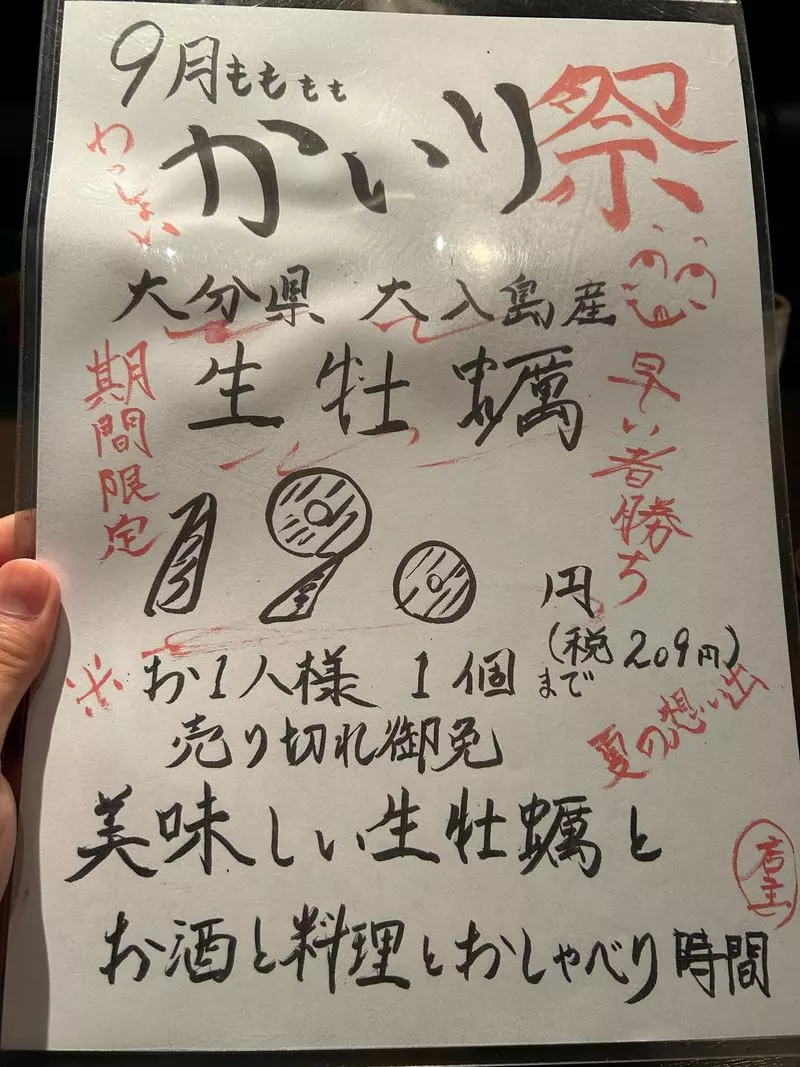 9月もももも
かいり祭
わっしょい
大分県 大入島産
生牡蠣
期間限定
早い者勝ち
190円
(税209円)
※お1人様 1個まで
売り切れ御免
夏の想い出
美味しい生牡蠣と
お酒と料理とおしゃべり時間
店主